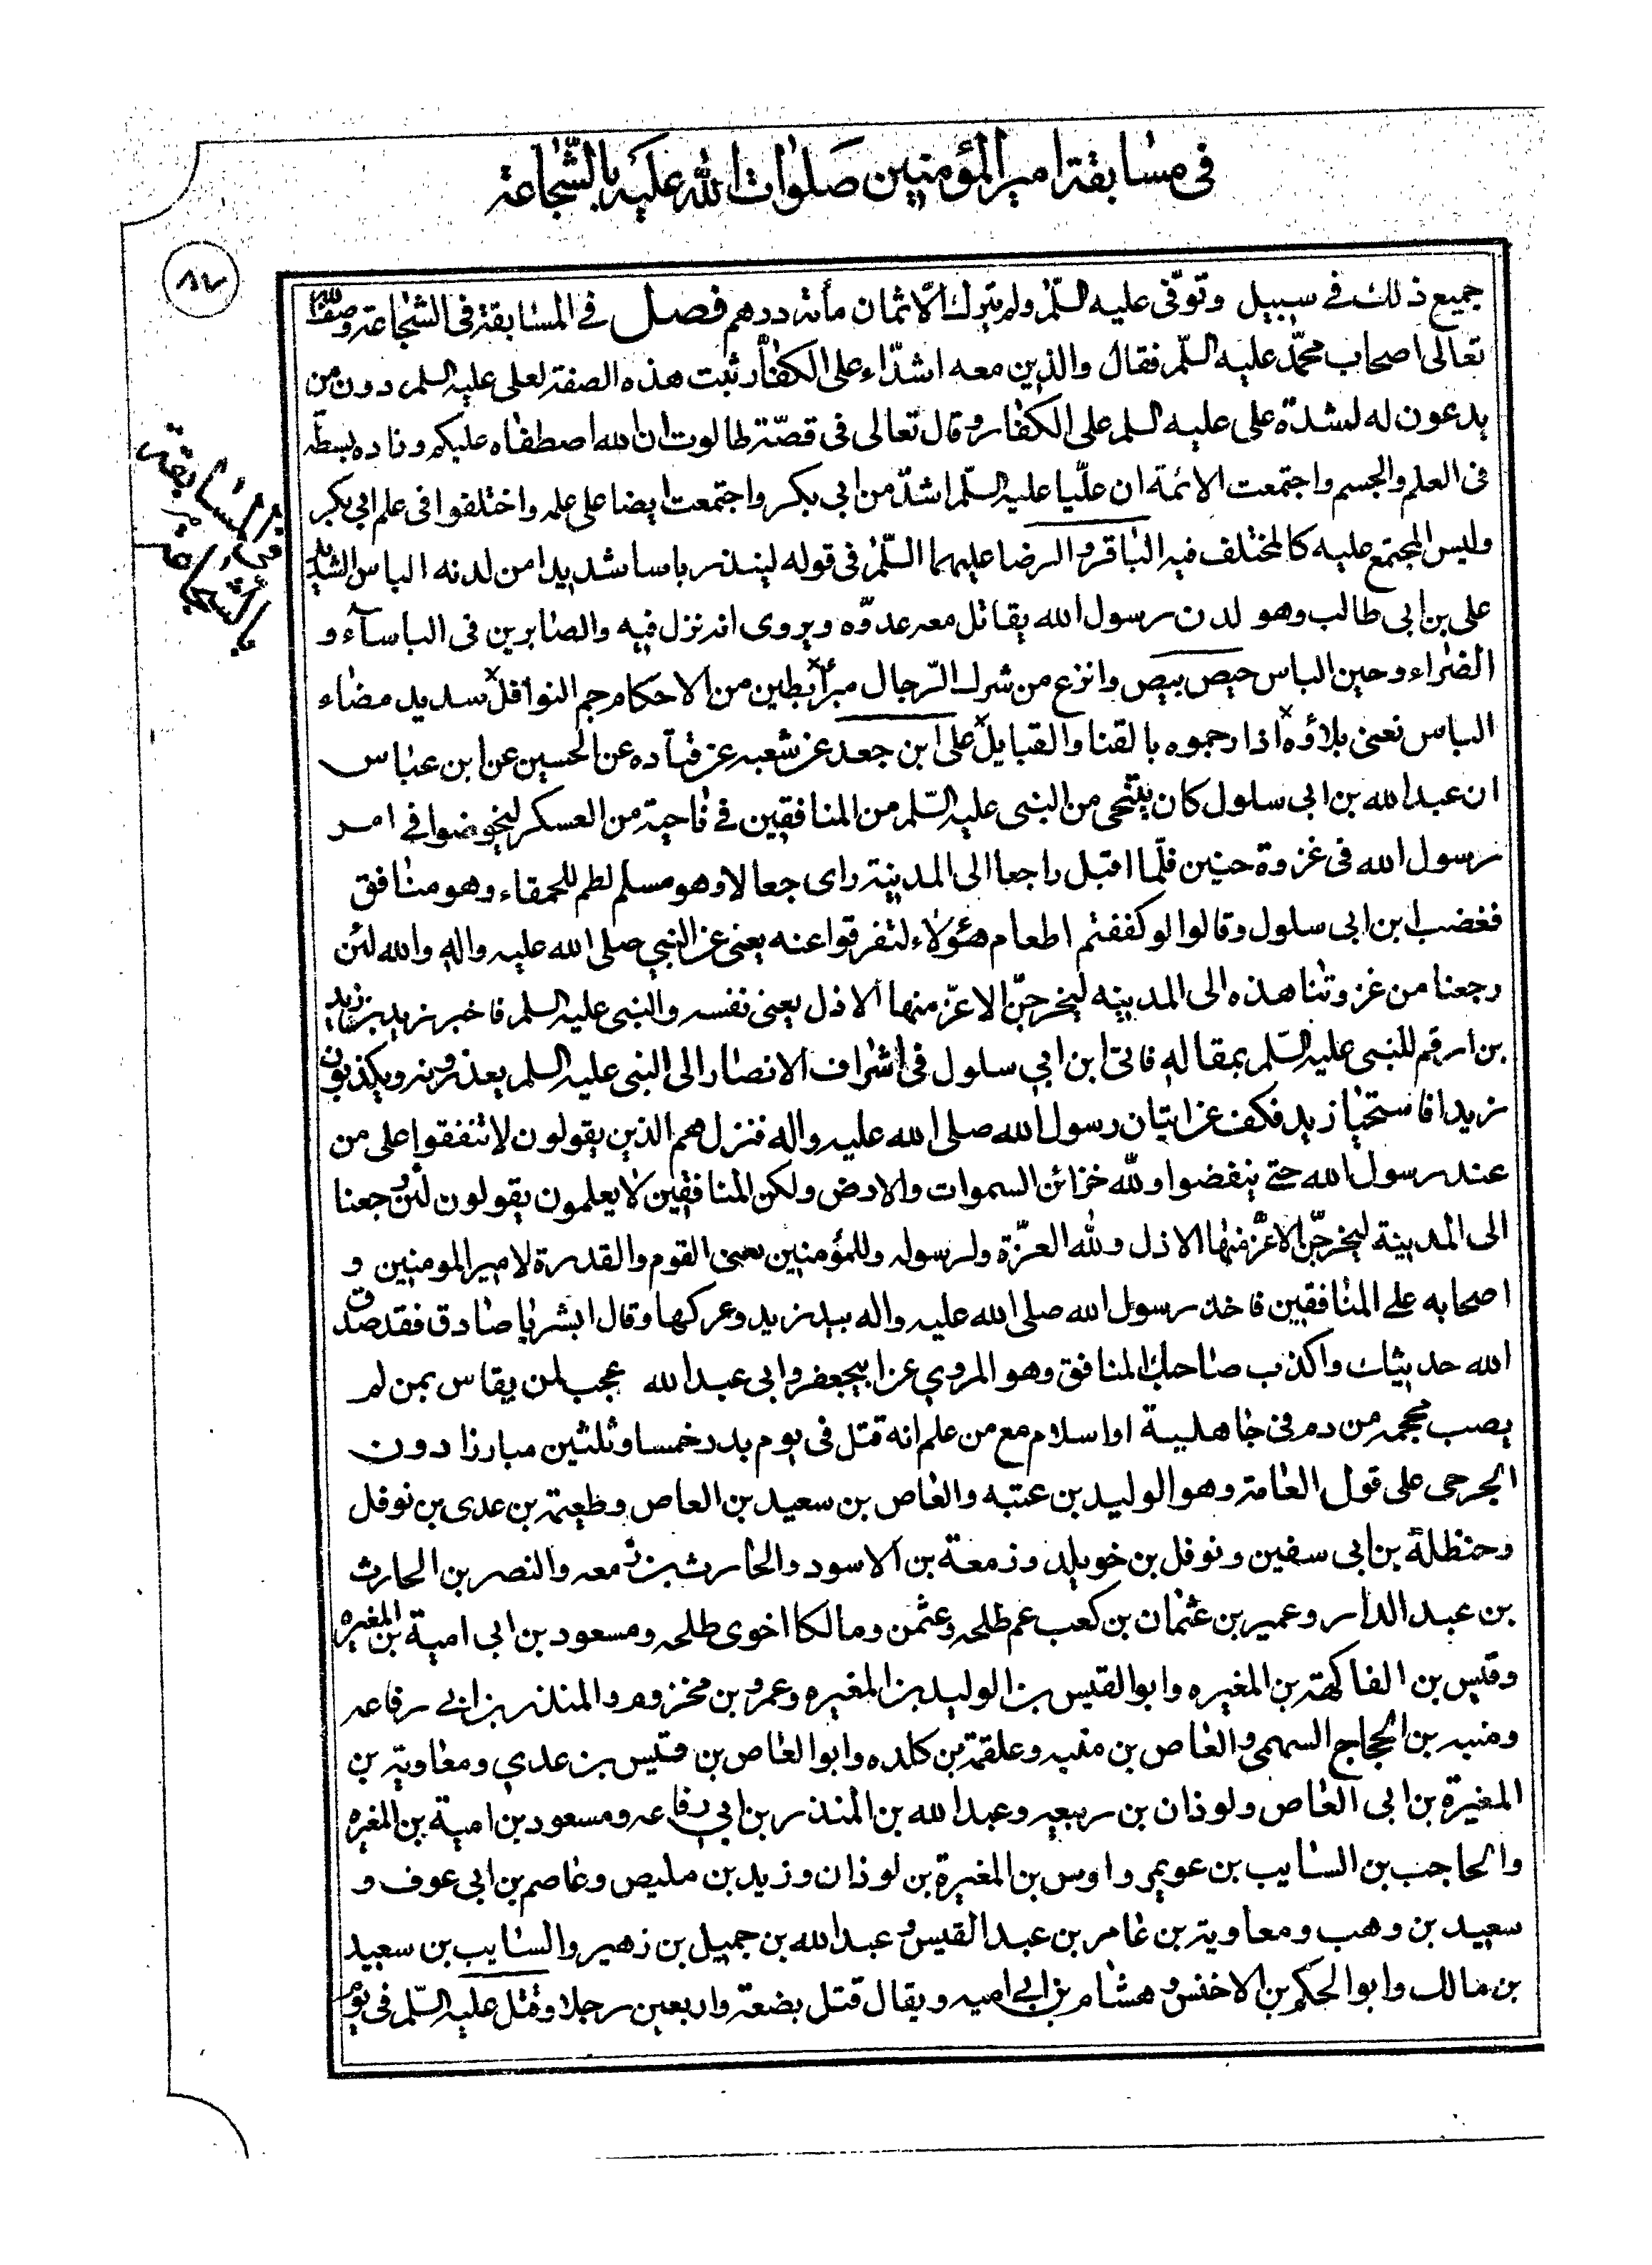 في مسابقة امير المؤمنين صلوات الله عليه بالشجاعة
٨٧
جميع ذلك في سبيل وتوفّى عليه السلم ولم يترك الّا ثمان مأئة درهم فصل في المسابقة في الشجاعة وصف الله
تعالى اصحاب محمّد عليه السلّم فقال والذين معه اشدّاء على الكفّار ثبت هذه الصفة لعلى عليه السلم دون من
يدعون له لشدة على عليه السلم على الكفار وقال تعالى فى قصّة طالوت ان الله اصطفاه عليكم وزاده بسطة
فى العلم والجسم واجتمعت الائمة ان عليّا عليه السلّم اشدّ من ابى بكر واجتمعت ايضا على علمه واختلفوا فى علم ابى بكر
وليس المجتمع عليه كالمختلف فيه الباقر والرضا عليهما السلّم فى قوله لينذر باسا شديدا من لدنه الباس الشديد
على بن ابى طالب وهو لدن رسول الله يقاتل معه عدوّه ويروى انه نزل فيه والصابرين فى الباسآء و
الضراء وحين الباس حيص بيص وانزع من شرك الرّجال مبرأ بطين من الاحكام جم النوافل سديد مضاء
الباس نعنى بلاؤه اذا رجموه بالقنا والقبايل على ابن جعد عن شعبه عن قتآده عن الحسين عن ابن عباس
ان عبد الله بن ابى سلول كان يتنحى من النبى عليه السّلم من المنافقين في ناحية من العسكر ليخوضوا في امر
رسول الله فى غزوة حنين فلّما اقبل راجعا الى المدينة راى جعالا وهو مسلم لطم للحمقاء وهو منافق
فغضب ابن ابى سلول وقالوا لو كففتم اطعام هؤلاء لتفرقوا عنه يعنى عن النبي صلى الله عليه واله والله لئن
رجعنا من غزوتنا هذه الى المدينه ليخرجنّ الاعزّ منها الاذل يعنى نفسه والنبى عليه السلم فاخبر زيد بن زيد
بن ارقم للنبى عليه السّلم بمقاله فاتى ابن ابي سلول فى اشراف الانصار الى النبى عليه السلم يعذرونه ويكذبون
زيدا فاستحيا زيد فكف عن اتيان رسول الله صلى الله عليه واله فنزل هم الذين يقولون لا تنفقوا على من
عند رسول الله حتى ينفضوا ولله خزائن السموات والارض ولكن المنافقين لا يعلمون يقولون لئن رجعنا
الى المدينة ليخرجنّ الاعزّ منها الاذل ولله العزّة ولرسوله وللمؤمنين يعنى القوم والقدرة لامير المومنين و
اصحابه على المنافقين فاخذ رسول الله صلى الله عليه واله بيد زيد وعركها وقال ابشر يا صادق فقد صدق
الله حديثك واكذب صاحبك المنافق وهو المروي عن ابيجعفر وابى عبد الله عجب لمن يقاس بمن لم
يصب محجمه من دم فى جاهلية او اسلام مع من علم انه قتل فى يوم بدر خمسا وثلثين مبارزا دون
الجرحى على قول العامة وهو الوليد بن عتبه والعاص بن سعيد بن العاص وطعيمة بن عدى بن نوفل
وحنظلة بن ابى سفين ونوفل بن خويلد وزمعة بن الاسود والحارث بن زمعه والنصر بن الحارث
بن عبد الدار وعمير بن عثمان بن كعب عم طلحه وعثمن ومالكا اخوى طلحه ومسعود بن ابى امية بن المغيره
وقيس بن الفاكهة بن المغيره وابو القيس بن الوليد بن المغيره وعمرو بن مخزوم والمنذر بن ابي رفاعه
ومنبه بن الحجاج السهمى والعاص بن منبه وعلقمة بن كلده وابو العاص بن قيس بن عدي ومعاوية بن
المغيرة بن ابى العاص ولوذان بن ربيعه وعبد الله بن المنذر بن ابي رفاعه ومسعود بن امية بن المغره
والحاجب بن السايب بن عويمر واوس بن المغيرة بن لوذان وزيد بن مليص وعاصم بن ابى عوف و
سعيد بن وهب ومعاوية بن عامر بن عبد القيس وعبد الله بن جميل بن زهير والسايب بن سعيد
بن مالك وابو الحكم بن الاخنس وهشام بن ابي اميه ويقال قتل بضعة واربعين رجلا وقتل عليه السّلم فى يوم
في المسابقة
بالشجاعة